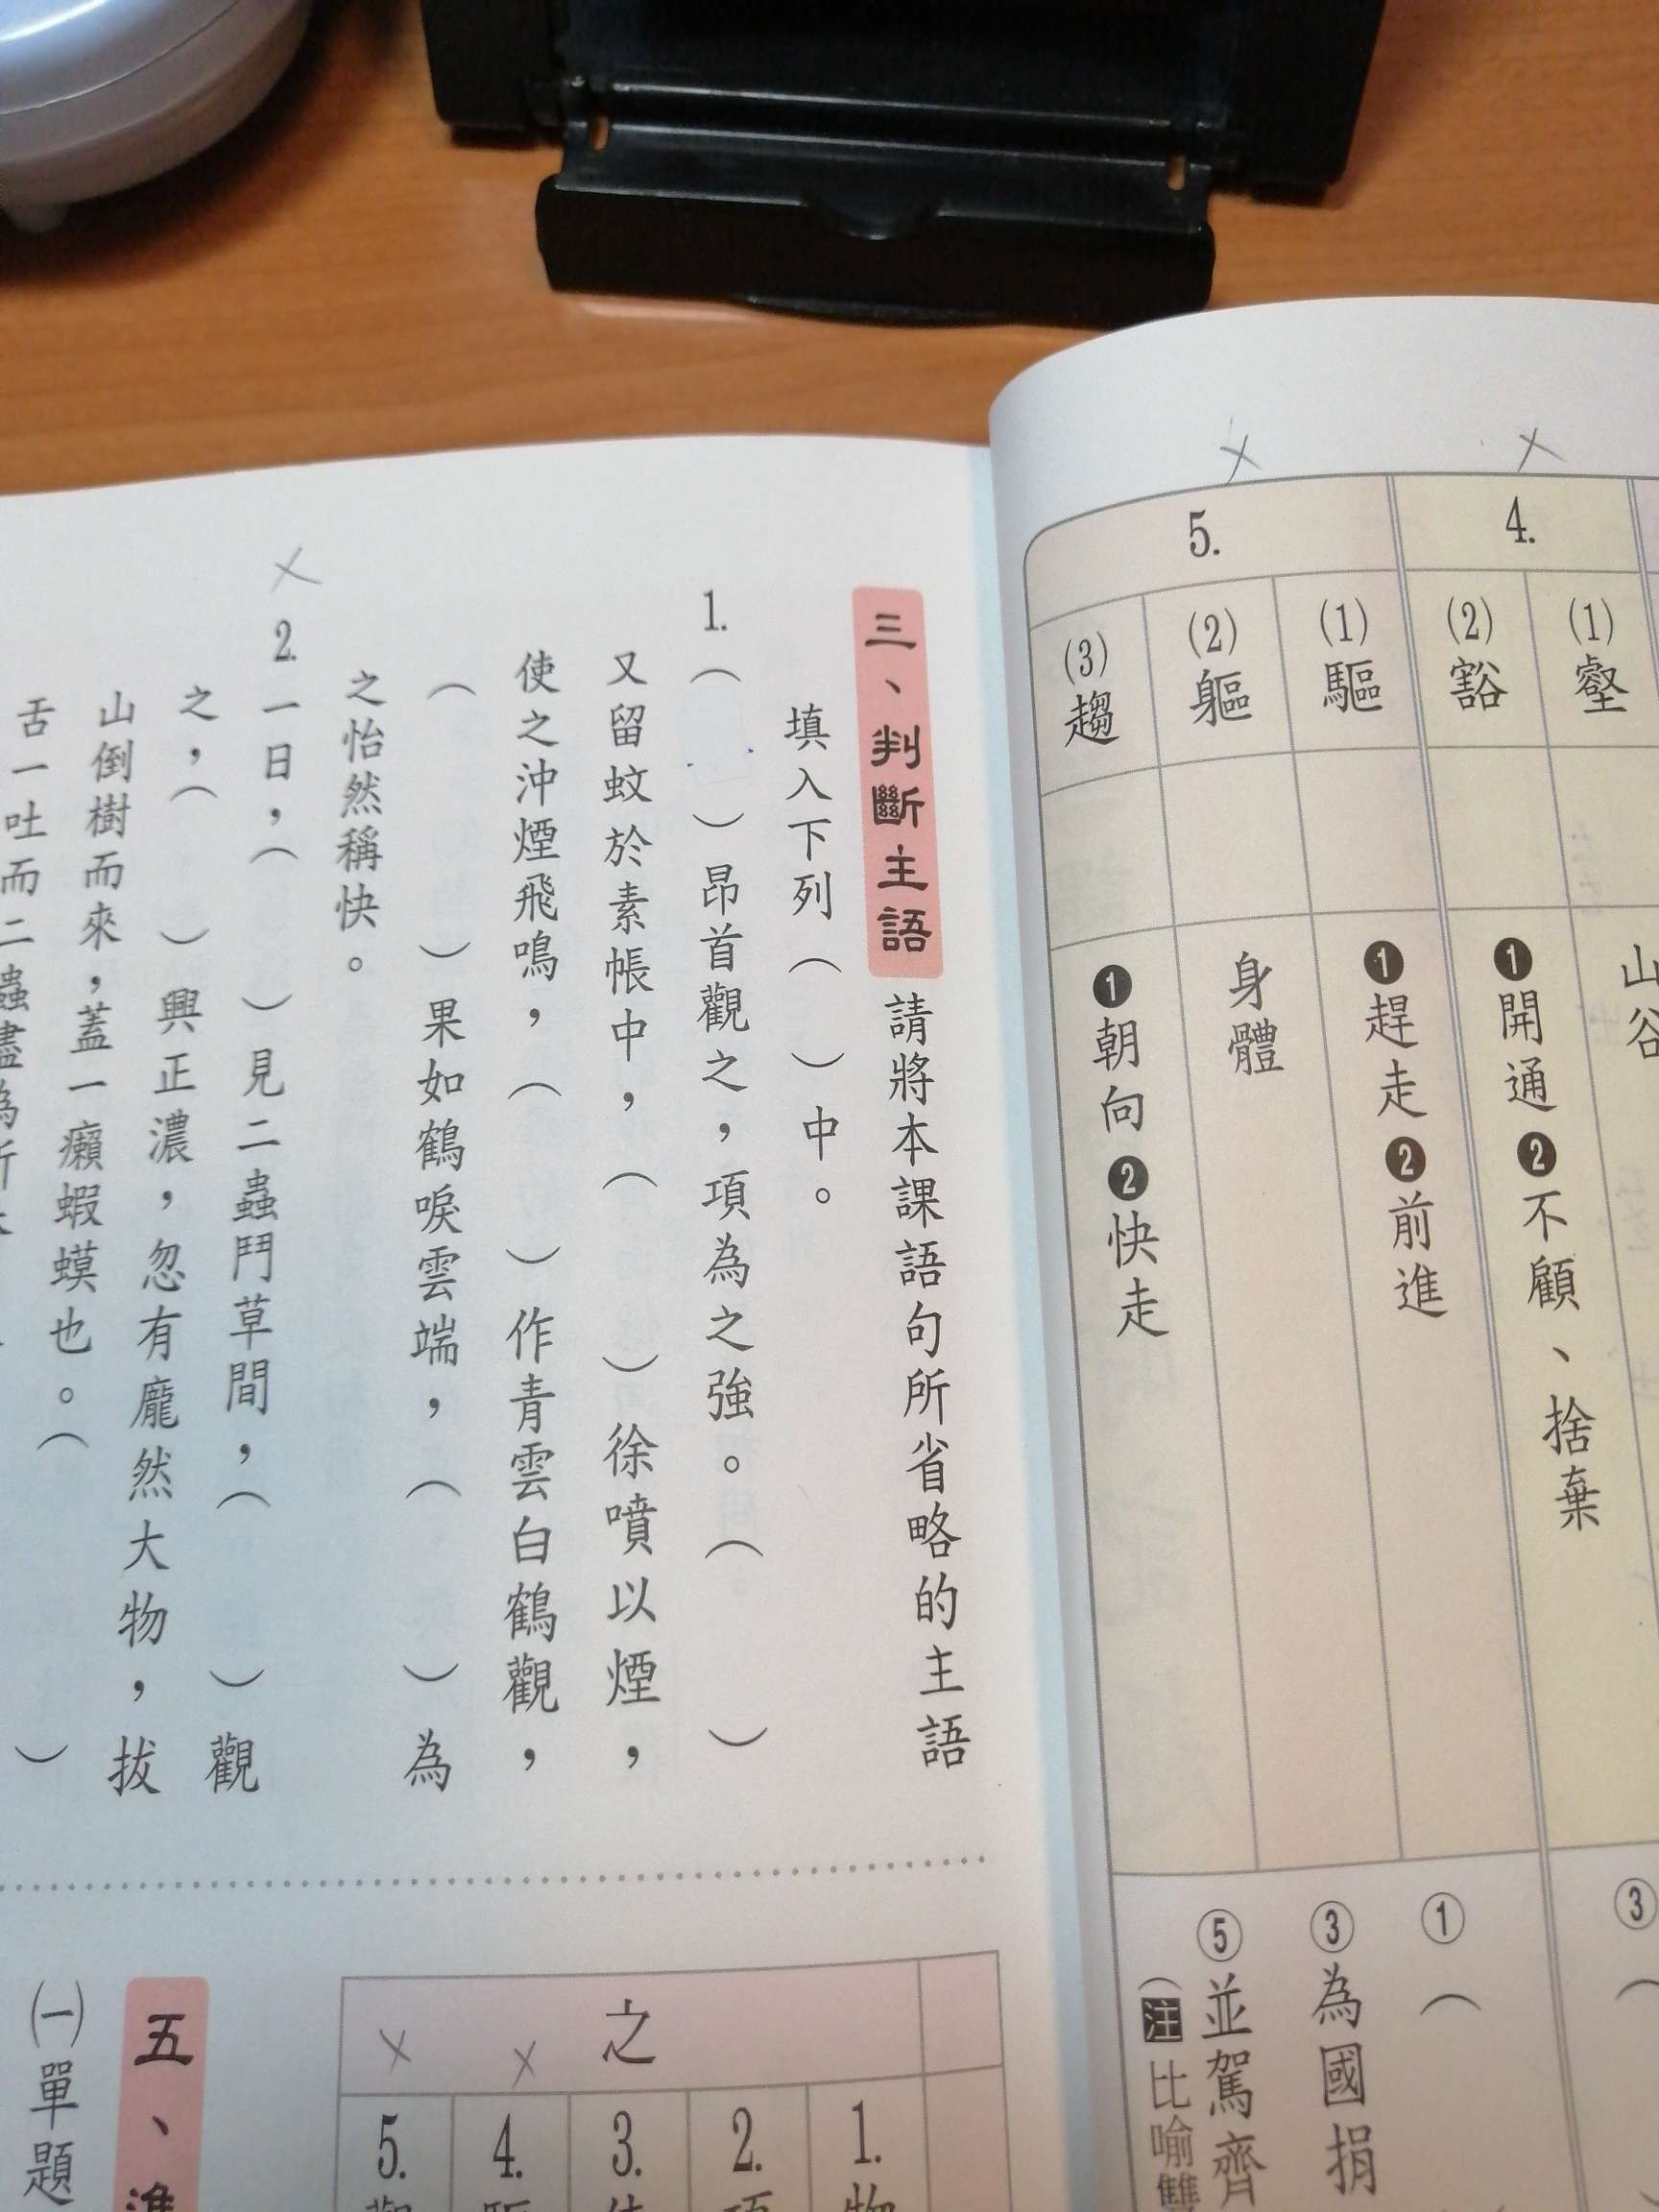 4.
(1)壑
山谷
(2)豁
❶開通❷不顧、捨棄
③(
5.
(1)驅
❶趕走❷前進
①(
(2)軀
身體
③為國捐
(3)趨
❶朝向❷快走
⑤並駕齊
(注比喻雙
三、判斷主語 請將本課語句所省略的主語
填入下列( )中。
1.( )昂首觀之,項為之強。( )
又留蚊於素帳中,( )徐噴以煙,
使之沖煙飛鳴,( )作青雲白鶴觀,
( )果如鶴唳雲端,( )為
之怡然稱快。
2.一日,( )見二蟲鬥草間,( )觀
之,( )興正濃,忽有龐然大物,拔
山倒樹而來,蓋一癩蝦蟆也。( )
舌一吐而二蟲盡為所
之
1.物
2.項
3.
4.
5.觀
五、進
㈠單題